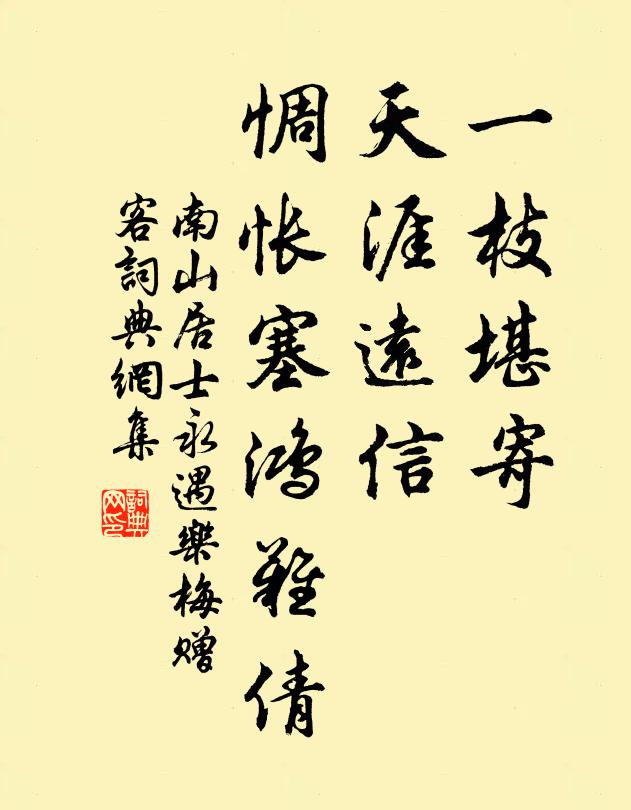 一枝堪寄
天涯遠信
惆悵塞鴻難倩
南山居士永遇樂梅贈
客詞典網集
詞典
网印